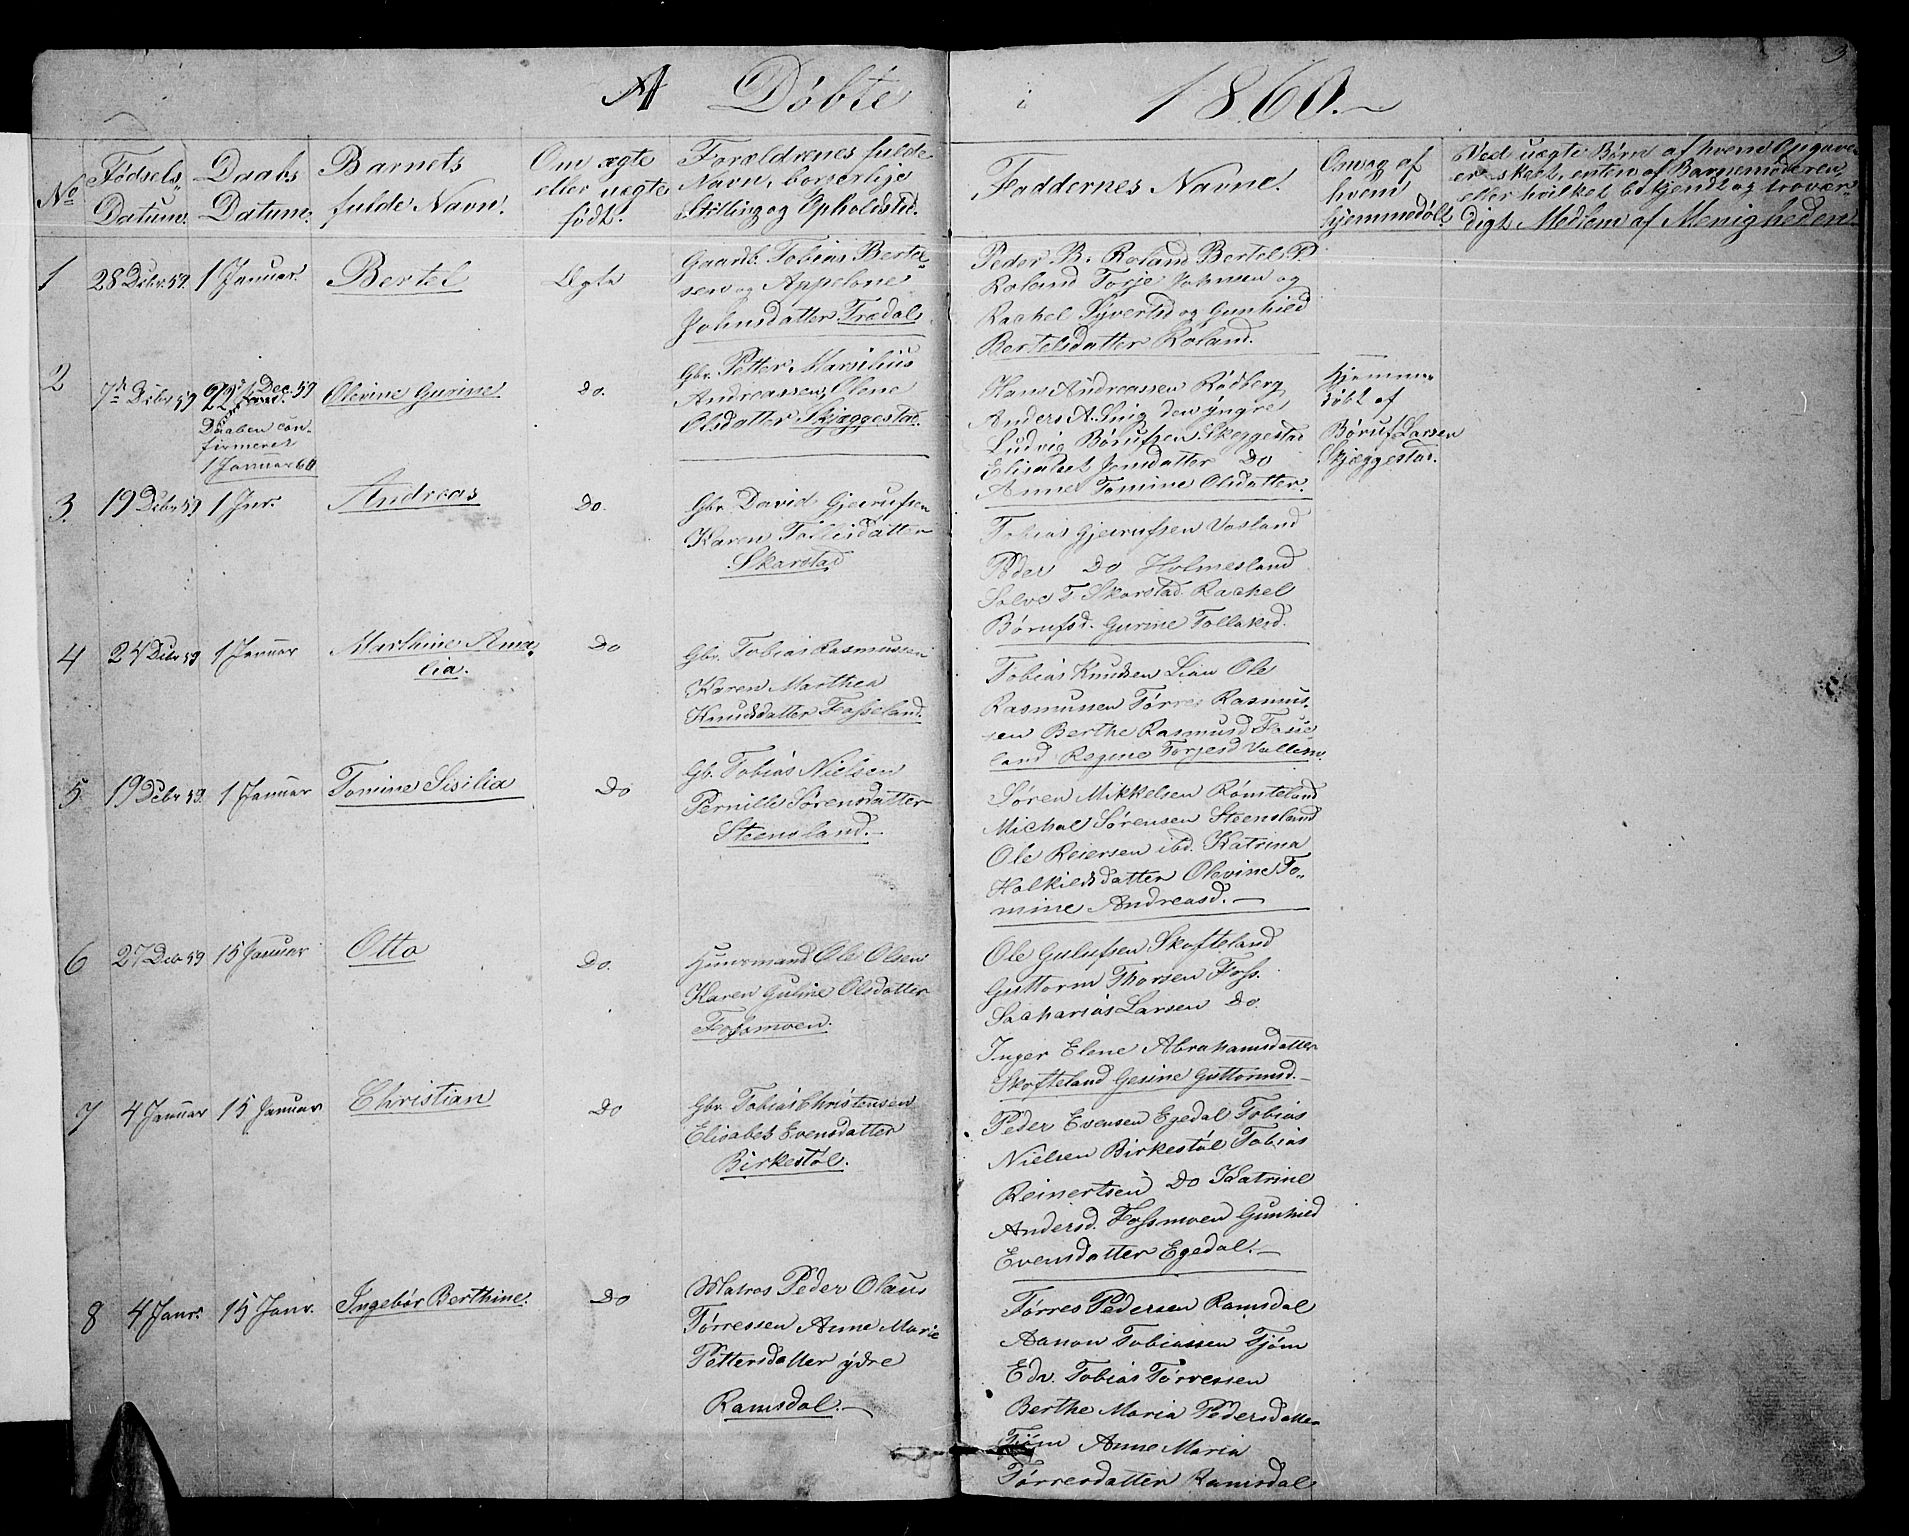 3
A Døbte i 1860.
No
Fødsels Datum.
Daabs Datum.
Barnets fulde Navn.
Om ægte eller uægte født.
Forældrenes fulde Navn, borgerlige Stilling og Opholdstd.
Faddernes Navne.
Omsag af hvem hjemmedøbt
Ved uægte Børn af hvem Opgave er skeet, enten af Barnemoderen eller hvilket bekjendt og troværdigt Medlem af Menigheden.
1
28 Debr. 59.
1 Januar.
Bertel
Ægte
Gaardb. Tobias Bertel-
sen og Appelone
Johnsdatter Trædal
Peder B. Roland Bertel P.
Roland Torje Johnsen og
Rachel Syvertsd og Gunhild
Bertelsdatter Roland.
2
7de Debr 59
Dec. 59
Daaben con-
firmeret
1 Januar 60
Olevine Gurine
Do.
Gbr. Petter Marselius
Andreassen, Olene
Olsdatter Skjeggestad.
Hans Andreassen Rødberg
Anders A. Snig den yngre
Ludvig Børufsen Skeggestad
Elisabet Jensdatter Do
Anne Tomine Olsdatter.
Hjemme-
døbt af
Børuf Larsen
Skjeggestad.
3.
19 Debr 59
1 Jnr.
Andreas
Do.
Gbr. David Gjerufsen
Karen Tollisdatter
Skarstad
Tobias Gjerufsen Vasland
Peder Do Holmesland
Salve T. Skarstad. Rachel
Børufsd. Gurine Tollaksd.
4
24 Debr 59
1 Januar
Marthine Ama-
lia.
Do
Gbr. Tobias Rasmussen
Karen Marthea
Knudsdatter Fosseland.
Tobias Knudsen Lian Ole
Rasmussen Tørres Rasmus-
sen Berthe Rasmusd Fosse
land Regine Torjesd Vallem
5
19 Debr 59.
1 Januar
Tomine Sisilia
Do
Gb. Tobias Nielsen
Pernille Sørensdatter
Steensland.
Søren Mikkelsen Rømteland
Michal Sørensen Steensland
Ole Reiersen ibd. Katrina
Halkildsdatter Olevine To-
mine Andreasd.
6
27 Deb 59
15 Januar
Otto
Do.
Huusmand Ole Olsen
Karen Guline Olsdatter
Fossmoen.
Ole Gulufsen Skofteland
Guttorm Thorsen Foss.
Sacharias Larsen Do
Inger Elene Abrahamsdatter
Skofteland Gesine Guttormsd.
7
4 Januar
15 Januar
Christian
Do
Gbr. Tobias Christensen
Elisabet Evensdatter
Birkestøl.
Peder Evensen Egedal Tobias
Nielsen Birkestøl Tobias
Reinertsen Do Katrine
Andersd. Fossmoen Gunhild
Evensdatter Egedal.
8
4 Janr.
15 Janr.
Ingebør Berthine.
Do
Matros Peder Olaus
Tørressen Anne Marie
Pettersdatter ydre
Ramsdal.
Tørres Pedersen Ramsdal
Aanon Tobiassen Tjøm
Edv. Tobias Tørressen
Berthe Maria Pedersdatter
Tjøm Anne Maria
Tørresdatter Ramsdal